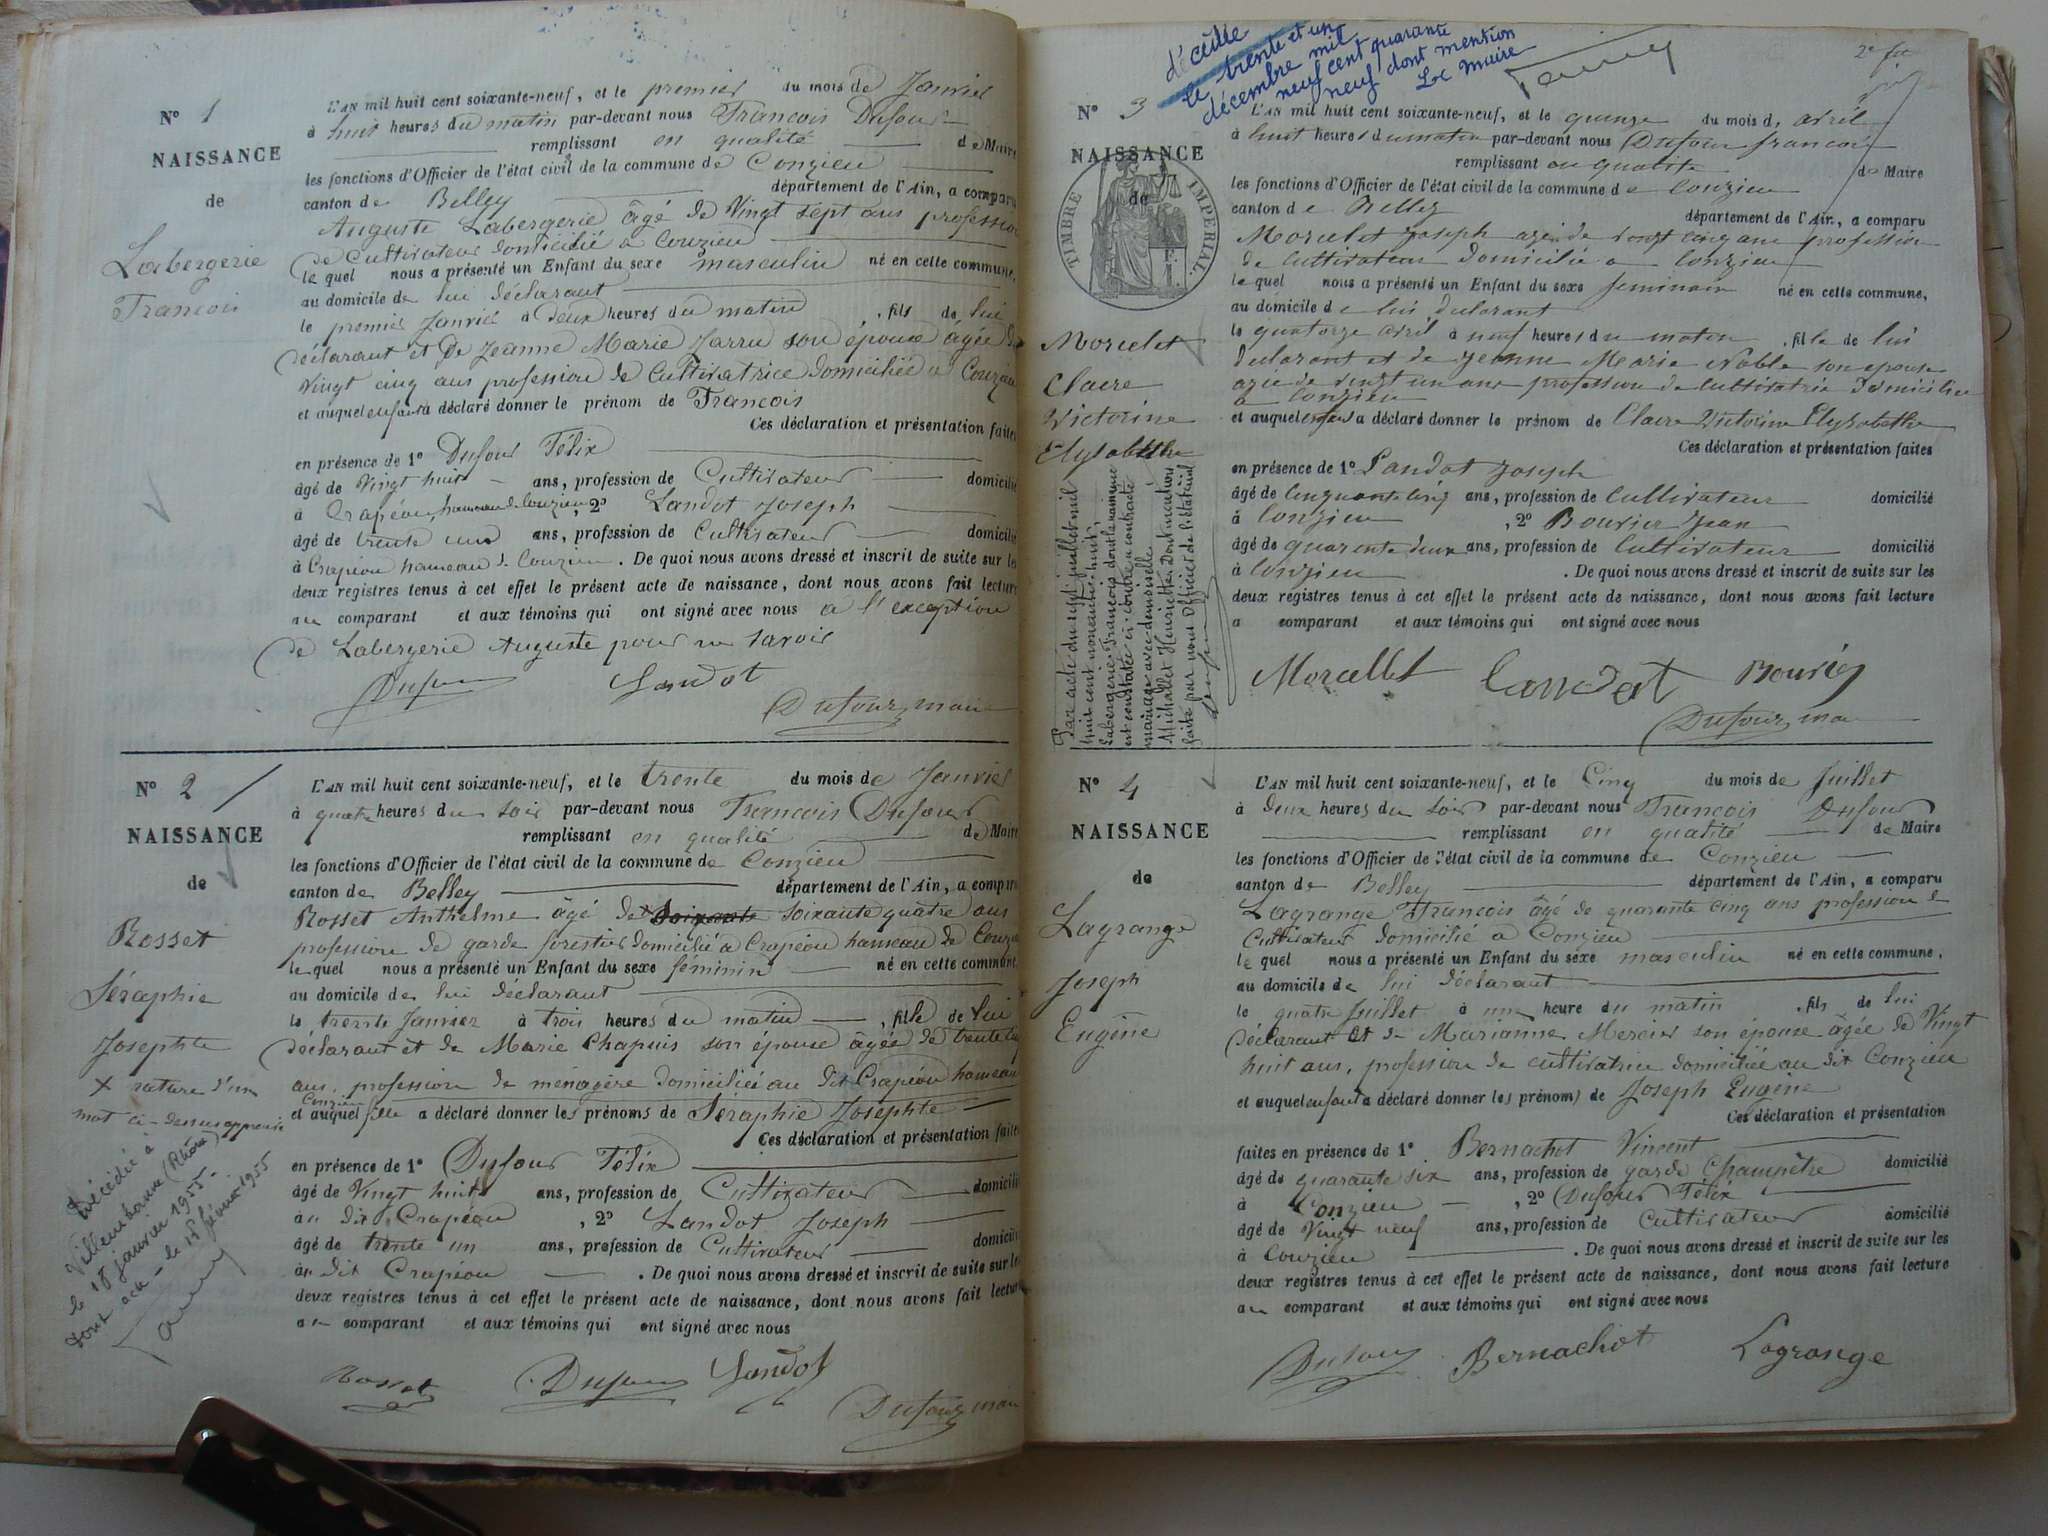 N° 1
NAISSANCE
de
Labergerie
Francois
L'AN mil huit cent soixante-neuf, et le premier du mois de Janvier
à huit heures du matin par-devant nous Francois Dufour
remplissant en qualité de Maire
les fonctions d'Officier de l'état civil de la commune de Conzieu
canton de Belley département de l'Ain, a comparu
Auguste Labergerie âgé de Vingt sept ans profession
de Cultivateur domicilié a Conzieu
le quel nous a présenté un Enfant du sexe masculin né en cette commune,
au domicile de lui déclarant
le premier Janvier à deux heures du matin, fils de lui
déclarant et De Jeanne Marie Jarru son épouse âgée de
Vingt cinq ans profession de Cultivatrice domiciliée a Conzieu
et auquel enfant a déclaré donner le prénom de Francois
Ces déclaration et présentation faites
en présence de 1° Dufour Félix
âgé de Vingt huit ans, profession de Cultivateur domicilié
à Crapéou hameau de Conzieu, 2° Landot Joseph
âgé de trente un ans, profession de Cultivateur domicilié
à Crapéou hameau de Conzieu. De quoi nous avons dressé et inscrit de suite sur les
deux registres tenus à cet effet le présent acte de naissance, dont nous avons fait lecture
au comparant et aux témoins qui ont signé avec nous a l'exception
de Labergerie Auguste pour ne savoir
Dufour Landot
Dufour maire
N° 2
NAISSANCE
de
Rosset
Séraphie
Josephte
x rature d'un
mot ci-dessus approuvé
Décédée à
Villeurbanne (Rhône)
le 18 janvier 1955.
Dont acte - le 18 février 1955
L'AN mil huit cent soixante-neuf, et le trente du mois de Janvier
à quatre heures du soir par-devant nous Francois Dufour
remplissant en qualité de Maire
les fonctions d'Officier de l'état civil de la commune de Conzieu
canton de Belley département de l'Ain, a comparu
Rosset Anthelme âgé de x soixante soixante quatre ans
profession de garde forestier domicilié a Crapéou hameau de Conzieu
le quel nous a présenté un Enfant du sexe féminin né en cette commune
au domicile de lui déclarant
le trente Janvier à trois heures du matin, fille de lui
déclarant et de Marie Chapuis son épouse âgée de trente
ans, profession de ménagère domiciliée au dit Crapéou hameau
Conzieu
et auquel fille a déclaré donner les prénoms de Séraphie Josephte
Ces déclaration et présentation faites
en présence de 1° Dufour Félix
âgé de Vingt huit ans, profession de Cultivateur domicilié
au dit Crapéou, 2° Landot Joseph
âgé de trente un ans, profession de Cultivateur domicilié
au dit Crapéou. De quoi nous avons dressé et inscrit de suite sur les
deux registres tenus à cet effet le présent acte de naissance, dont nous avons fait lecture
au comparant et aux témoins qui ont signé avec nous
Rosset Dufour Landot
Dufour maire
décédée
le trente et un
décembre mil
neuf cent quarante
neuf dont mention
Le Maire
2e
N° 3
NAISSANCE
de
TIMBRE IMPÉRIAL.
Morcelet
Claire
Victorine
Elysabethe
Par acte du sept juillet mil
huit cent noventie-huit,
Labergerie François dont la naissance
est constatée ci-contre a contracté
mariage avec demoiselle
Michallet Henriette. Dont mention
faite par nous Officier de l'état civil
L'AN mil huit cent soixante-neuf, et le quinze du mois d. avril
à huit heures du matin par-devant nous Dufour francois
remplissant en qualite de Maire
les fonctions d'Officier de l'état civil de la commune de Conzieu
canton de Belley
département de l'Ain, a comparu
Morcelet Joseph age de vingt cinq ans profession
de Cultivateur domicilié a Conzieu
le quel nous a présenté un Enfant du sexe feminain né en cette commune,
au domicile de lui declarant
le quatorze avril à neuf heures du maton, fille de lui
declarant et de Jeanne Marie Noble son epouse
agee de vingt un ans profession de cultivatrie Domicilie
a Conzieu
et auquel enfant a déclaré donner le prénom de Claire Victorine Elysabethe
Ces déclaration et présentation faites
en présence de 1° Landot Joseph
âgé de cinquante cinq ans, profession de Cultivateur domicilié
à Conzieu, 2° Bouvier Jean
âgé de quarente deux ans, profession de Cultivateur domicilié
à Conzieu. De quoi nous avons dressé et inscrit de suite sur les
deux registres tenus à cet effet le présent acte de naissance, dont nous avons fait lecture
a comparant et aux témoins qui ont signé avec nous
Morcellet Landot Bouvier
Dufour, maire
N° 4
NAISSANCE
de
Lagrange
Joseph
Eugêne
L'AN mil huit cent soixante-neuf, et le Cinq du mois de Juillet
à deux heures du soir par-devant nous Francois Dufour
remplissant en qualité de Maire
les fonctions d'Officier de l'état civil de la commune de Conzieu
canton de Belley département de l'Ain, a comparu
Lagrange Francois âgé de quarante cinq ans profession de
Cultivateur domicilié a Conzieu
le quel nous a présenté un Enfant du sexe masculin né en cette commune,
au domicile de lui déclarant
le quatre Juillet à une heure du matin, fils de lui
déclarant et de Marianne Mercier son épouse âgée de Vingt
huit ans, profession de cultivatrice domiciliée au dit Conzieu
et auquel enfant a déclaré donner les prénoms de Joseph Eugêne
Ces déclaration et présentation
faites en présence de 1° Bernachot Vincent
âgé de quarante six ans, profession de garde Champêtre domicilié
à Conzieu, 2° Dufour Félix
âgé de Vingt neuf ans, profession de Cultivateur domicilié
à Conzieu. De quoi nous avons dressé et inscrit de suite sur les
deux registres tenus à cet effet le présent acte de naissance, dont nous avons fait lecture
au comparant et aux témoins qui ont signé avec nous
Dufour Bernachot Lagrange